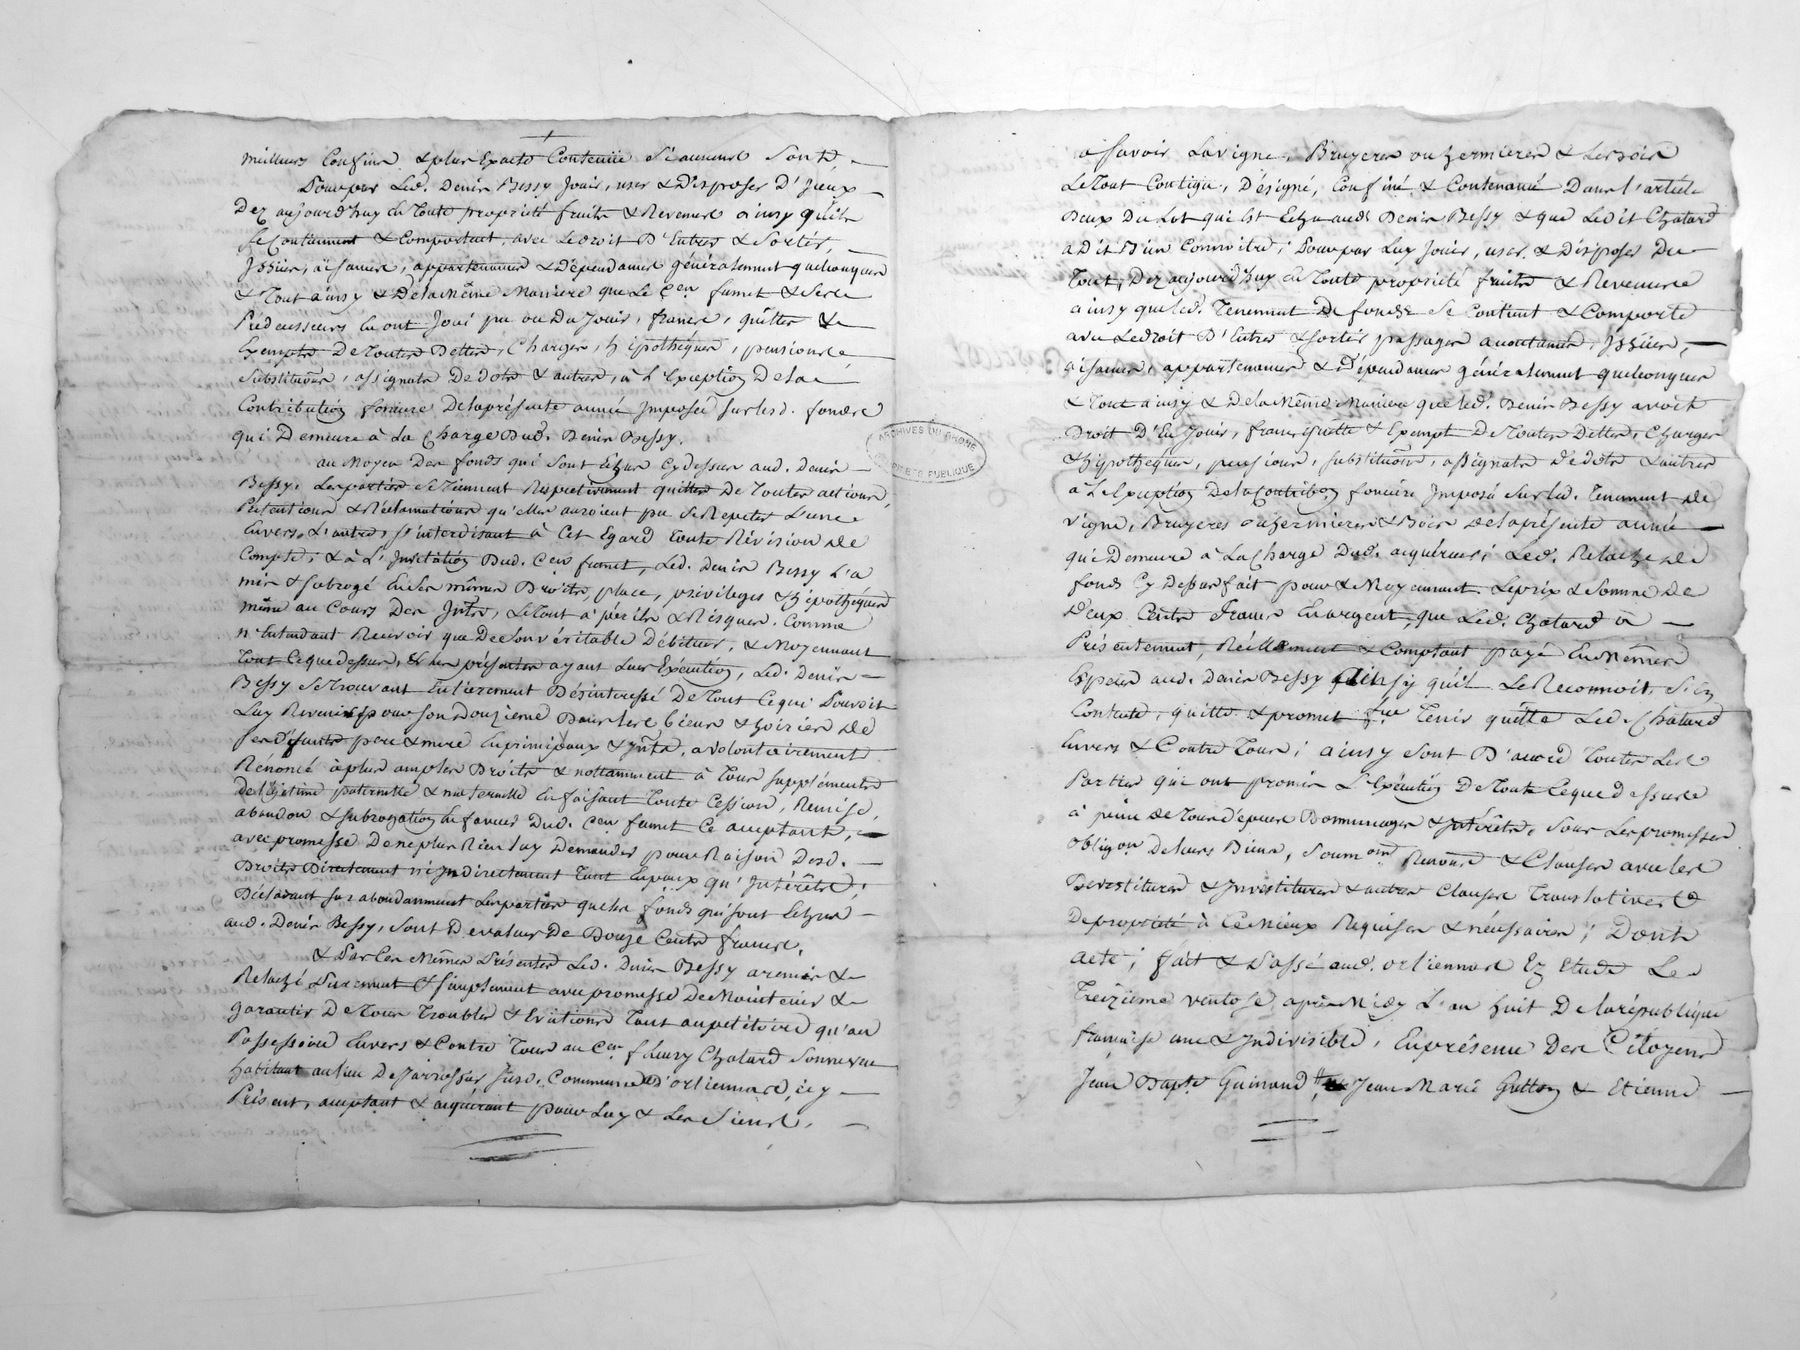 meilleurs Confins & plus Exacte Contenüe Si aucuns Sont
Pour par Led. Denis Bessy Jouir, user & Disposer D'Jceux
Dez aujourd'huy En Toute propriété fruits & Revenus ainsy qu'ils
se Contiennent & Comportent, avec Le droit D'Entrer & Sortir,
Jssües, aisances, appartenances & Dépendances généralement quelconques
& Tout ainsy & De la Même Maniere que Le Cen fumet & Ses
Prédecesseurs En ont Joui pu ou Du Jouir, francs, quittes &
Exempts De Toutes Dettes, Charges, hipotheques, pensions,
Substituons, assignats De dots & autres, à L'Exception De la
Contribution fonciere De la présente année Jmposée sur lesd. fonds
qui Demeure à La Charge Dud. Denis Bessy.
au Moyen Des fonds qui Sont Echus Cy dessus aud. Denis
Bessy, Les parties Se Tiennent Respectivement quittes De Toutes actions,
Prétentions & Réclamations qu'elles auroient pu Se Repeter L'une
Envers L'autre, s'interdisant à Cet Egard Toute Révision de
Compte; & à L'Jnvitation Dud. Cen fumet, Led. Denis Bessy L'a
mis & subrogé En Ses mêmes Droits, place, privileges & hÿpotheques
même au Cours Des Jnts, Le Tout à périls & Risques. Comme
n'Entendant Recevoir que De Son véritable Débiteur, & Moyennant
Tout Ce que dessus, & les présentes ayant Leur Exécution, Led. Denis
Bessy Se Trouvant Entierement Désinteressé De Tout Ce qui Pouvoit
Luy Revenir pour son Douzieme Dans Les biens & hoiries de
ses défunts pere & mere En principaux & Jnts, a volontairement
Rénoncé à plus amples Droits & nottamment à Tous suppléments
De légitime paternelle & maternelle En faisant Toute Cession, Remise,
abandon & subrogation En faveur Dud. Cen fumet Ce acceptant,
avec promesse De ne plus Rien Luy Demander pour Raison Desd.
Droits Directement ni Jndirectement Tant En ppaux qu'Jntérêts;
Déclarant surabondamment Les parties que les fonds qui sont Echus
aud. Denis Bessy, Sont D valeur De Douze Cents francs.
& Par Ces Mêmes Présentes Led. Denis Bessy a remis &
Relaché Purement & simplement avec promesse De Maintenir &
garantir De Tous Troubles & Evictions Tant au petitoire qu'au
Possessoire Envers & Contre Tous au Cen fleury Chatard
habitant au lieu De Jarnossas susd. Commune D'ortiennas, icy
Présent, acceptant & acquérant pour Luy & Les Siens,
a Savoir La vigne, Bruyeres ou hermieres & Les bois
Le Tout Contigu, Désigné, Confiné & Contenancé Dans l'article
Deux Du Lot qui Est Echu aud. Denis Bessy & que Ledit Chatard
a Dit Bien Connoitre; Pour par Luy Jouir, user & Disposer Du
Tout Dez aujourd'huy En Toute propriété fruits & Revenus
ainsy que led. Tenement De fonds Se Contient & Comporte
avec Le droit D'Entrer & sortir passages accoutumés, Jssües,
aisances, appartenances & Dépendances généralement quelconques
& Tout ainsy & De la Même Maniere que led. Denis Bessy avoit
Droit D'En Jouir, franc, quitte & Exempt De Toutes Dettes, Charges
& hipotheques, pensions, substituons, assignats de dots & autres
à L'Exception De la Contribon fonciere Jmposée Sur led. Tenement de
vigne, Bruyeres ou hermieres & Bois de la présente année
qui Demeure à La Charge Dud. acquéreur; Led. Relache de
fonds Cy Dessus fait pour & Moyennant Le prix & Somme de
Deux Cents francs En argent, que Led. Chatard a
Présentement, Réellement & Comptant payé En Mêmes
Especes aud. Denis Bessy ainsy qu'il Le Reconnoit, S'en
Contente, quitte & promet faire Tenir quitte Led. Chatard
Envers & Contre Tous; ainsy Sont D'accord Toutes Les
Parties qui ont promis L'Exécution De Tout Ce que dessus
à peine de Tous dépens Dommages & Jntérêts, Sous Les promesses
Obligaon De leurs Biens, Soumon Renonce & Clauses avec les
Devestitures & Jnvestitures & autres Clauses Translatives
De propriété à Ce Mieux Requises & nécessaires; Dont
acte; fait & Passé aud. ortiennas Ez Etude Le
Treizieme ventose après Midy L'an huit De la république
française une & Jndivisible, En présence Des Citoyens
Jean Bapte Guinand, Jean Marie Gutton & Etienne
ARCHIVES DU RHONE
PROPRIETE PUBLIQUE